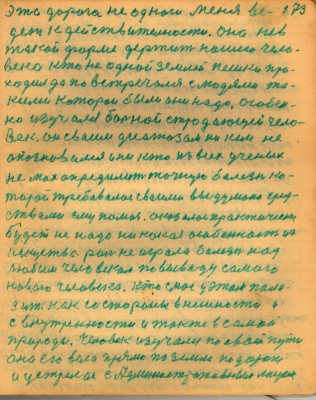 Эта дорога не одного меня ве- 173
дет к действительности. Она не в
такой форме держит нашего чело-
века кто не одной землей пешком про-
ходил да повстречался с людями та-
кими которые были ему надо. Особен-
но изучал больной страдающий чело-
век. Он своим диагозам никем не
опознавался и ни кто из всех ученых
не мог определить точную болезнь ко-
торой требовалося своими выдумами сред-
ствами ему помоч. оказалось практически
будет не надо никакая особенность из
искуства. роли не играла болезн над
любым человеком по выводу самого
нового человека. Кто смог у этом пока-
зат. как со стороны внешности и
с внутренности и также в самой
природы. Человек изучал по своей пути
она его вела прямо по земле по дороги
и устрелся с Административным лицом